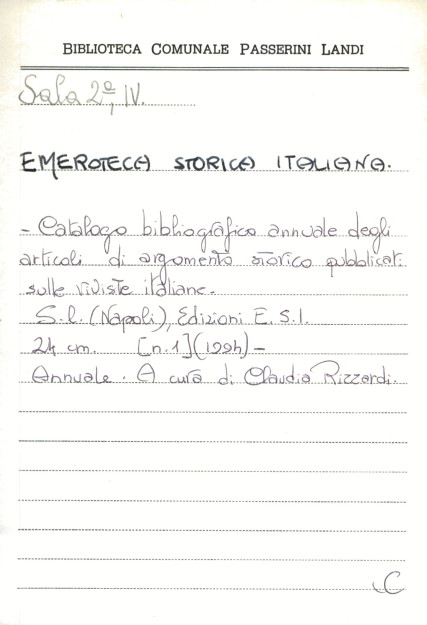 BIBLIOTECA COMUNALE PASSERINI LANDI
Sala 2ª, IV.
EMEROTECA STORICA ITALIANA.
- Catalogo bibliografico annuale degli
articoli di argomento storico pubblicati
sulle riviste italiane.
S.l. (Napoli), Edizioni E.S.I.
24 cm. [n.1] (1994) -
Annuale. A cura di Claudia Rizzardi.
C